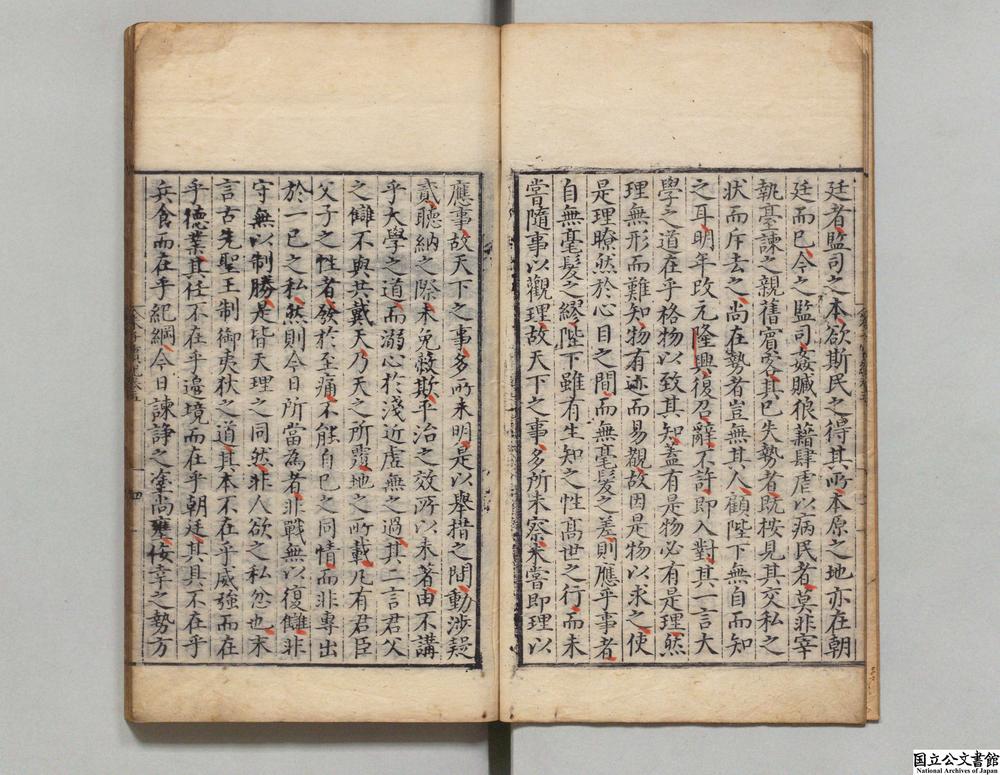 廷者監司之本欲斯民之得其所本原之地亦在朝
廷而已今之監司姦贓狼藉肆虐以病民者莫非宰
執臺諫之親舊賓客其已失勢者既按見其交私之
状而斥去之尚在勢者豈無其人顧陛下無自而知
之耳明年改元隆興復召辭不許即入對其一言大
學之道在乎格物以致其知蓋有是物必有是理然
理無形而難知物有迹而易覩故因是物以求之使
是理瞭然於心目之間而無毫髮之差則應乎事者
自無毫髮之繆陛下雖有生知之性高世之行而未
嘗隨事以觀理故天下之事多所未察未嘗即理以
應事故天下之事多所未明是以舉措之間動渉疑
貳聽納之際未免蔽欺平治之效所以未著由不講
乎大學之道而溺心於淺近虛無之過其二言君父
之讎不與共戴天乃天之所覆地之所載凡有君臣
父子之性者發於至痛不能自已之同情而非專出
於一已之私然則今日所當為者非戰無以復讎非
守無以制勝是皆天理之同然非人欲之私忿也末
言古先聖王制御夷狄之道其本不在乎威強而在
乎德業其任不在乎邊境而在乎朝廷其具不在乎
兵食而在乎紀綱今日諫諍之塗尚壅佞幸之勢方
四
国立公文書館
National Archives of Japan